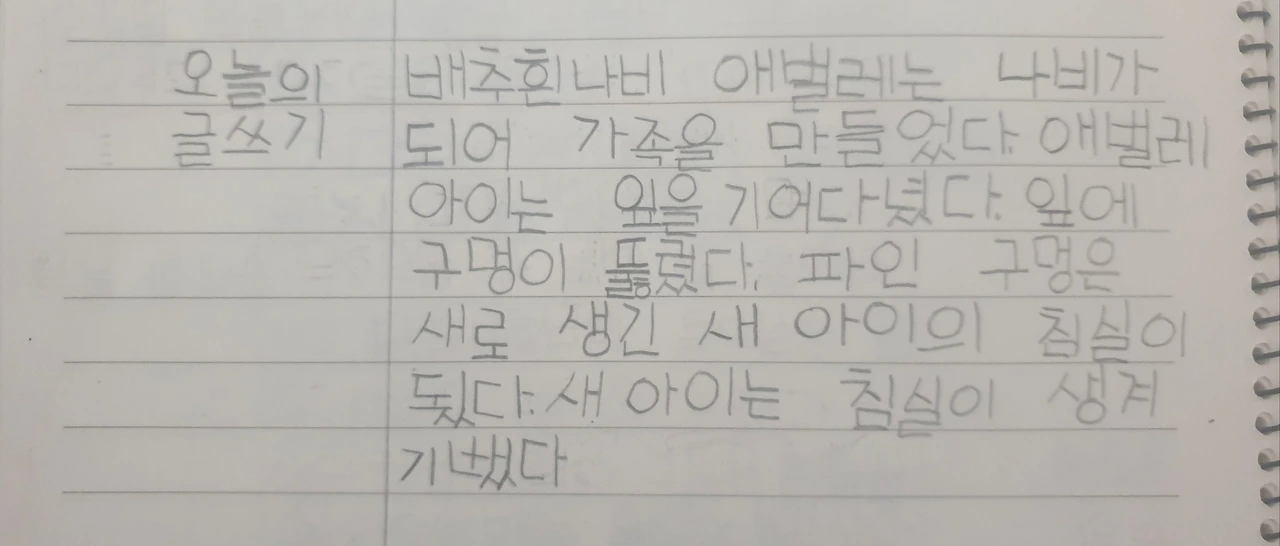 오늘의
글쓰기
배추흰나비 애벌레는 나비가
되어 가족을 만들었다. 애벌레
아이는 잎을 기어다녔다. 잎에
구멍이 뚫렸다. 파인 구멍은
새로 생긴 새 아이의 침실이
됬다. 새 아이는 침실이 생겨
기뻤다